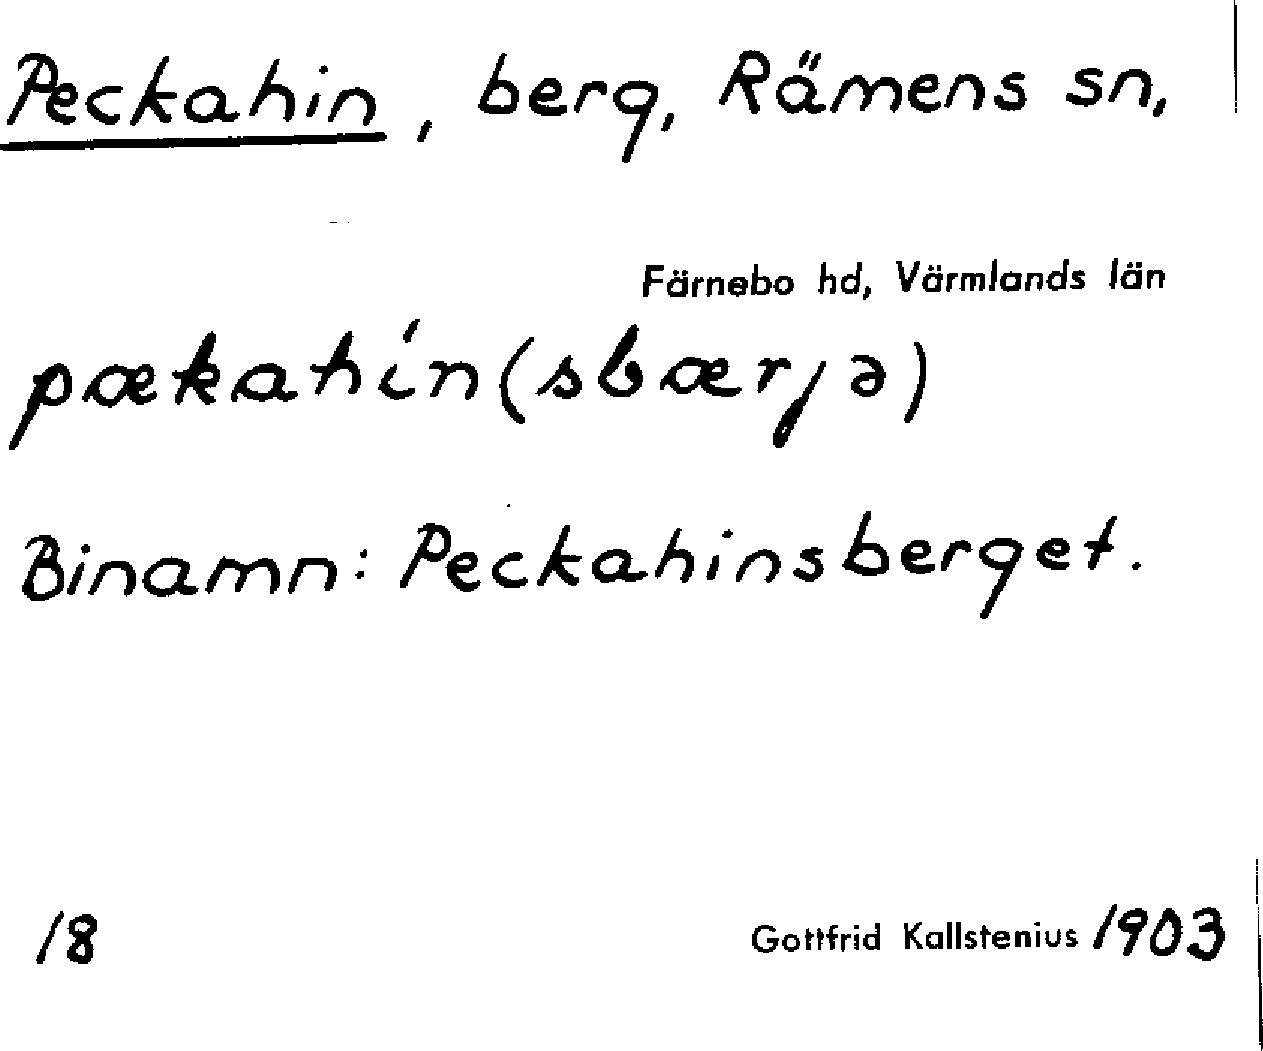 Peckahin, berg, Rämens sn,
Färnebo hd, Värmlands län
pækahín(sbærjə)
Binamn: Peckahinsberget.
18
Gottfrid Kallstenius 1903